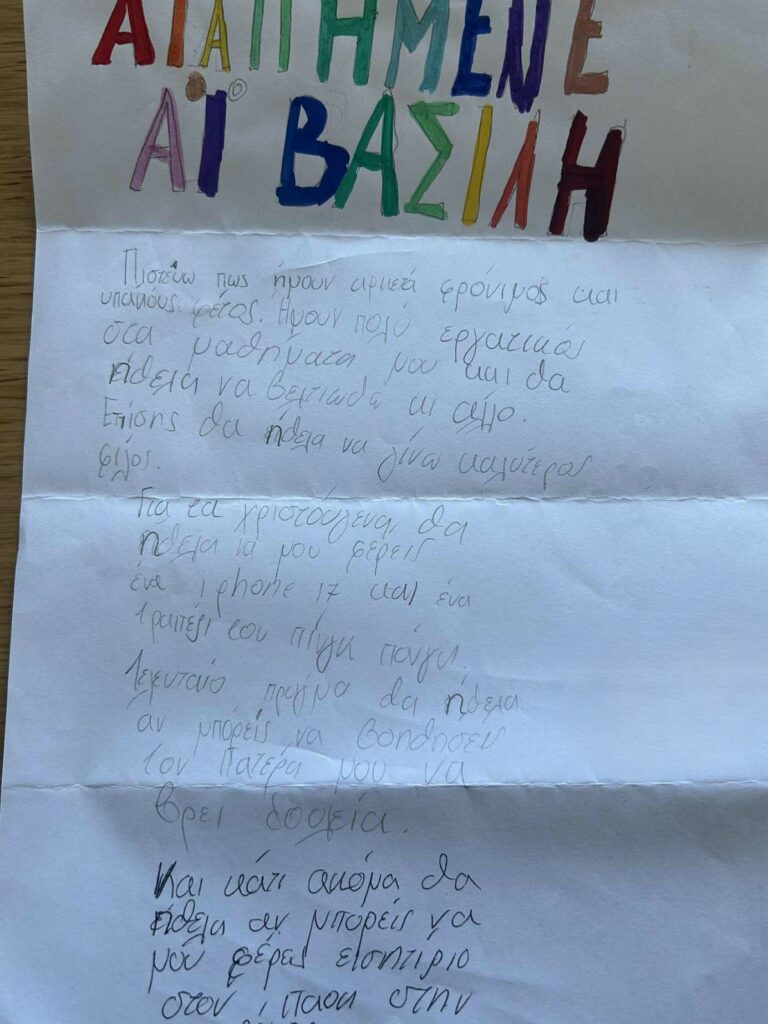 ΑΓΑΠΗΜΕΝΕ
ΑΪ ΒΑΣΙΛΗ
Πιστεύω πως ήμουν αρκετά φρόνιμος και
υπάκους φέτος. Ήμουν πολύ εργατικός
στα μαθήματα μου και θα
ήθελα να βελτιωθώ κι άλλο.
Επίσης θα ήθελα να γίνω καλύτερος
φίλος.
Για τα χριστούγενα, θα
ήθελα να μου φέρεις
ένα iphone 17 και ένα
τραπέζι του πίνγκ πόνγκ.
Τελευταίο πράγμα θα ήθελα
αν μπόρείς να βοηθήσεις
τον Πατέρα μου να
βρει δουλειά.
Και κάτι ακόμα θα
ήθελα αν μπορείς να
μου φέρεις εισητίριο
στον στην